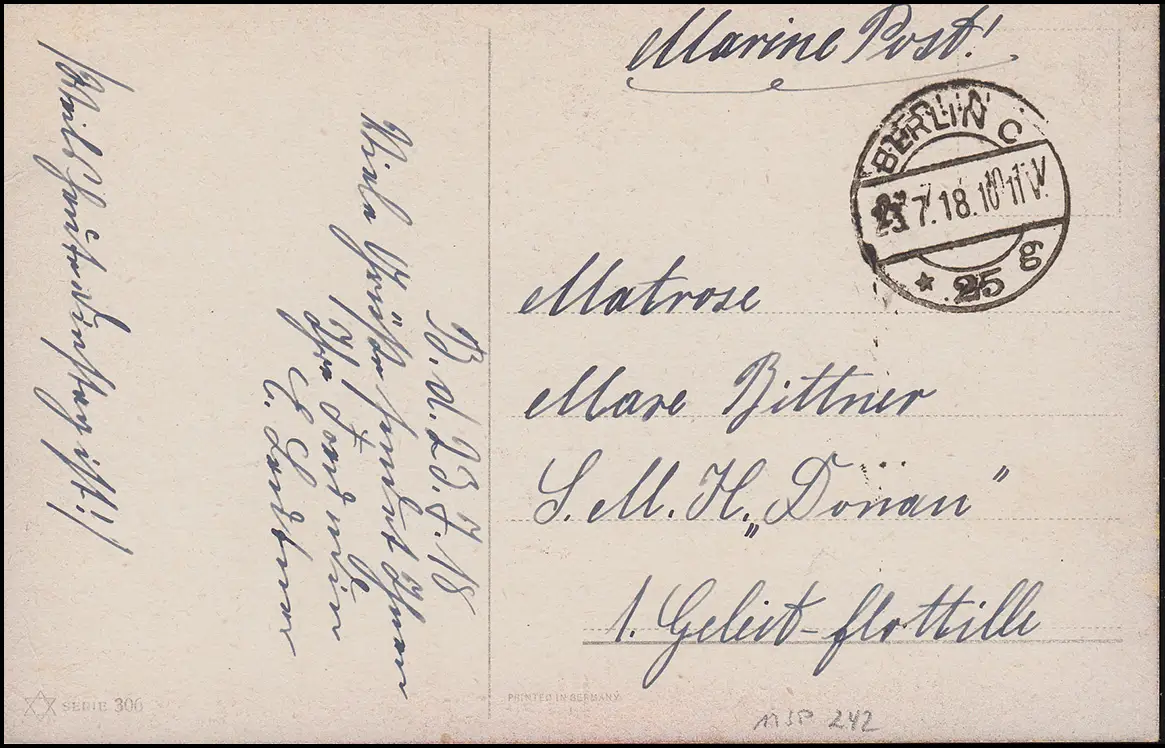 Marine Post!
BERLIN C
23.7.18.10-11V.
* 25 g
Matrose
Maxe Bittner
S. M. H. „Donau“
1. Geleit-flottille
B. d. 23.7.18
Viele Grüße sendet Ihnen
Ihre
(Weil heut Dienstag ist!!)
SERIE 306
PRINTED IN GERMANY
MSP 242